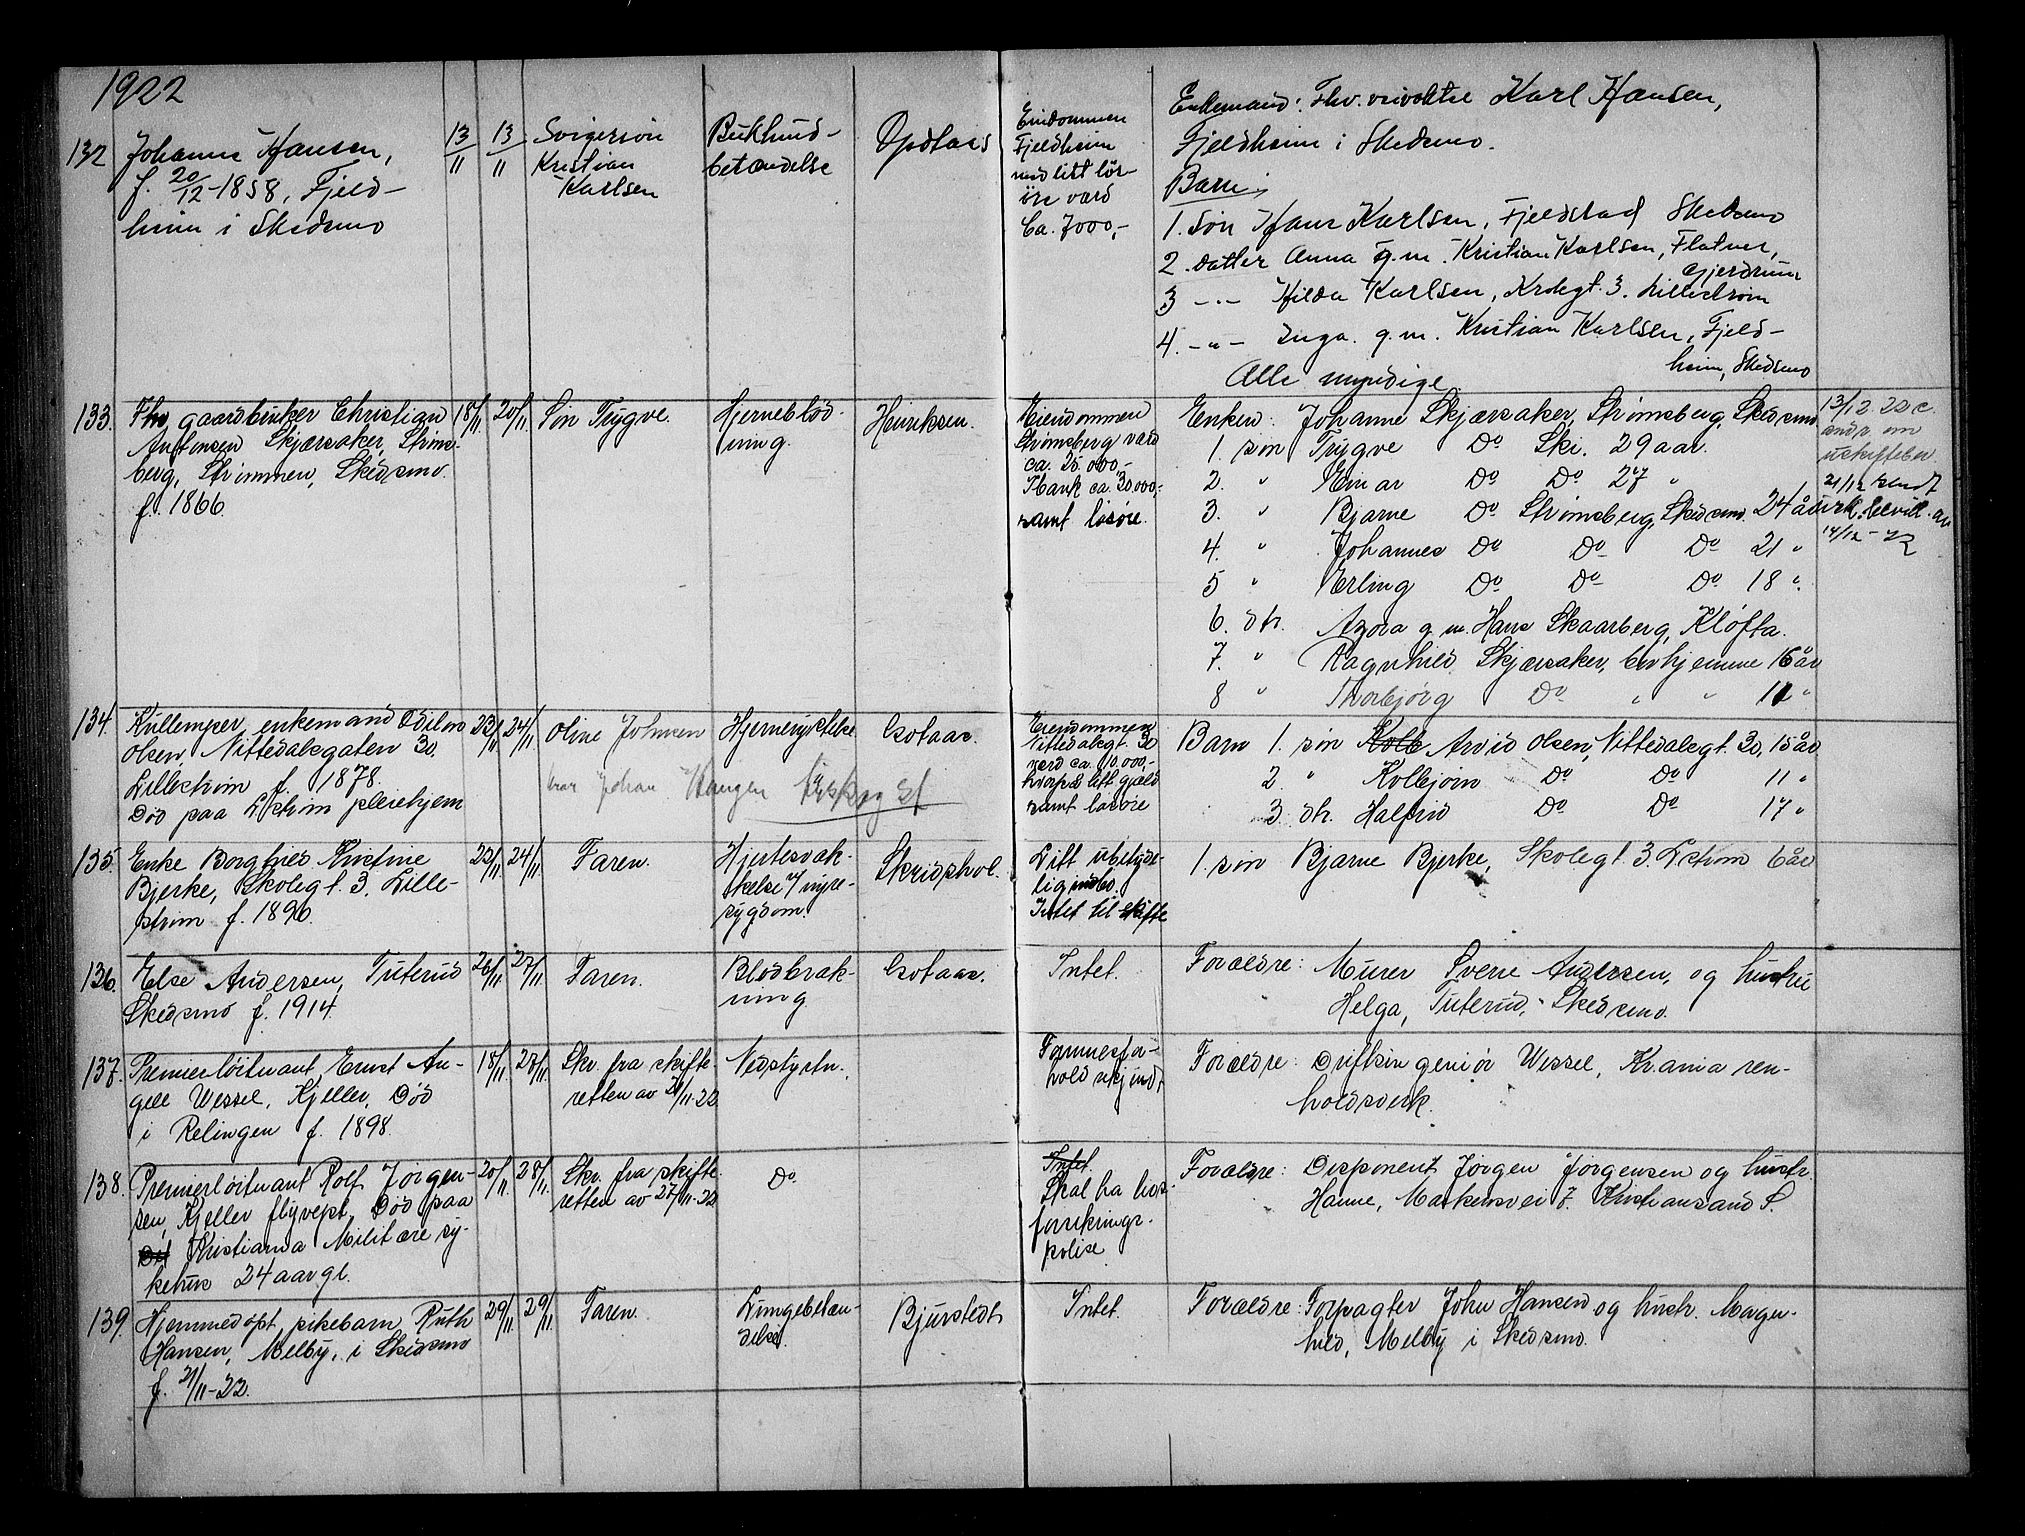 1922
132
Johanne Hansen,
f. 20/12-1858, Fjeld-
heim i Skedsmo
13/11
13/11
Svigersøn
Kristian
Karlsen
Bukhind-
betændelse
Opdals
Eiendommen
Fjeldheim
med litt løs-
øre værd
Ca. 7000,-
Enkemand: Fhv. Karl Hansen,
Fjeldheim i Skedsmo.
Barn:
1. Søn Hans Karlsen, Fjeldstad Skedsmo
2. datter Anna g.m. Kristian Karlsen, Flatner,
Gjerdrum
3 -"- Hilda Karlsen, Krogt. 3. Lillestrøm
4. -"- Inga. g.m. Kristian Karlsen, Fjeld-
heim, Skedsmo
Alle myndige.
133.
Fhv. gaardbruker Christian
Antonsen Skjærsaker, Strøms-
berg, Strømmen, Skedsmo.
f. 1866.
18/11.
20/11.
Søn Trygve.
Hjerneblød-
ning.
Henriksen.
Eiendommen
Strømsberg værd
ca. 25.000,-
I bank ca. 30.000,-
samt løsøre.
Enken: Johanne Skjærsaker, Strømsberg, Skedsmo
1. søn Trygve Do Ski. 29 aar.
2. " Einar Do Do 27 "
3. " Bjarne Do Strømsberg, Skedsmo. 24 år
4. " Johannes Do Do Do 21 "
5 " Erling Do Do Do 18 "
6. dtr. Azora g.m. Hans Skaarberg, Kløfta.
7. " Ragnhild Skjærsaker, bor hjemme 16 år
8 " Thorbjørg Do " " 11 "
13/12 22
andr. om
uskiftebev.
21/12 sendt
bevill. av
14/12-22
134.
enkemand Odilon
Olsen, Nittedalsgaten 30,
Lillestrøm f. 1878.
Død paa L.strøm pleiehjem
23/11
24/11
Oline Johnsen
bror Johan Haugen
Hjernerystelse
Gotaas.
Eiendommen
Nittedalsgt. 30
værd ca. 10.000,-
hvorpå litt gjæld
samt løsøre
Barn 1. søn Kolb Arvid Olsen, Nittedalsgt. 30, 15 år
2 " Kolbjørn Do Do 11 "
3. dtr. Halfrid Do Do 17 "
135.
Enke Borghild Kristine
Bjerke, Skolegt. 3, Lille-
strøm f. 1896.
22/11
24/11
Faren.
Hjertesvæk-
kelse & nyre-
sygdom.
Skridshol.
Litt ubetyde-
lig indbo.
Intet til skifte
1. søn Bjarne Bjerke, Skolegt. 3. L.strøm 6 år
136.
Else Andersen, Tuterud
Skedsmo f. 1914.
26/11
27/11
Faren.
Blodbræk-
ning.
Gotaas.
Intet.
Forældre: Murer Sverre Andersen, og hustru
Helga, Tuterud, Skedsmo.
137.
Premierløitnant Ernst An-
gell Wessel, Kjeller, Død
i Relingen f. 1898.
18/11.
28/11.
Skr. fra skifte-
retten av 21/11-22
Nedstyrtn.
Formuesfor-
hold ukjendt
Forældre: Driftsingeniør Wessel, Kr.ania ren-
holdsverk.
138.
Premierløitnant Rolf Jørgen-
sen, Kjeller flyvepl. Død paa
Kristiania Militære sy-
kehus 24 aar gl.
20/11.
28/11.
Skr. fra skifte-
retten av 27/11-22
Do
Intet.
Skal ha livs-
forsikrings-
polise
Forældre: Disponent Jørgen Jørgensen og hustr.
Hanne, Markensvei 7. Kristiansand S.
139.
Hjemmedøpt pikebarn Ruth
Hansen, Melby, i Skedsmo
f. 21/11-22.
29/11
29/11.
Faren.
Lungebetæn-
delse.
Bjurstedt
Intet.
Forældre: Forpagter John Hansen og hustr. Magn-
hild, Melby i Skedsmo.